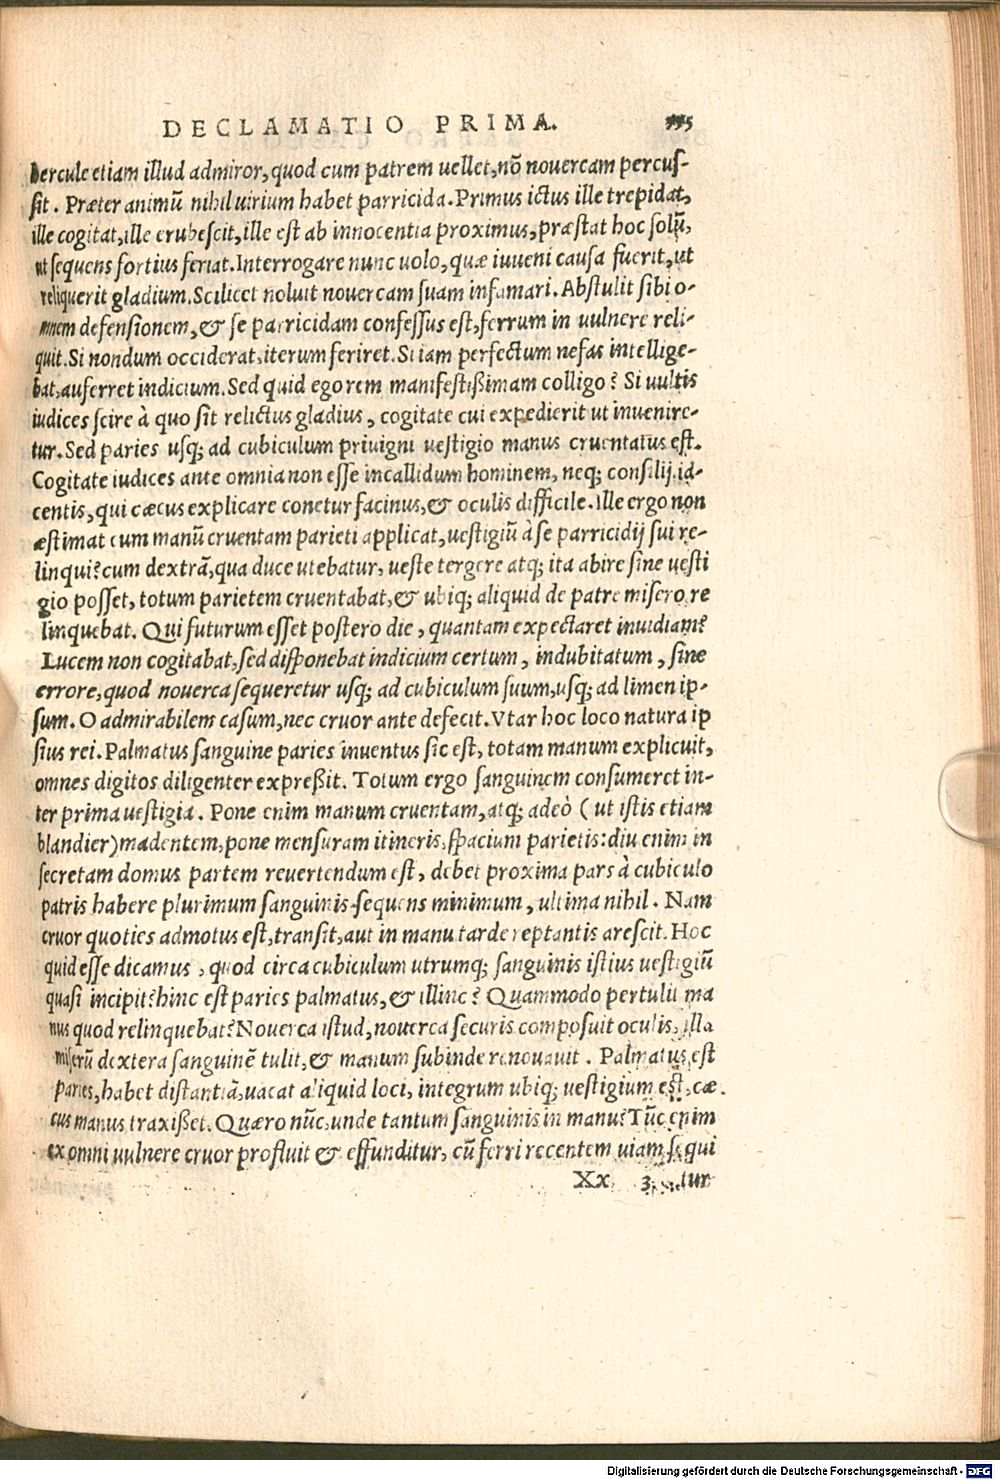 DECLAMATIO PRIMA.
hercule etiam illud admiror, quod cum patrem uellet, nõ nouercam percus-
sit. Præter animũ nihil uirium habet parricida. Primus ictus ille trepidat,
ille cogitat, ille erubescit, ille est ab innocentia proximus, præstat hoc solũ,
ut sequens fortius feriat. Interrogare nunc uolo, quæ iuueni causa fuerit, ut
reliquerit gladium. Scilicet noluit nouercam suam infamari. Abstulit sibi o-
mnem defensionem, & se parricidam confessus est, ferrum in uulnere reli-
quit. Si nondum occiderat, iterum feriret. Si iam perfectum nefas intellige-
bat, auferret indicium. Sed quid ego rem manifestißimam colligo? Si uultis
iudices scire à quo sit relictus gladius, cogitate cui expedierit ut inuenire-
tur. Sed paries usq; ad cubiculum priuigni uestigio manus cruentatus est.
Cogitate iudices ante omnia non esse incallidum hominem, neq; consilij ia-
centis, qui cæcus explicare conetur facinus, & oculis difficile. Ille ergo non
æstimat cum manũ cruentam parieti applicat, uestigiũ à se parricidij sui re-
linqui? cum dextrã, qua duce utebatur, ueste tergere atq; ita abire sine uesti
gio posset, totum parietem cruentabat, & ubiq; aliquid de patre misero re
linquebat. Qui futurum esset postero die, quantam expectaret inuidiam?
Lucem non cogitabat, sed disponebat indicium certum, indubitatum, sine
errore, quod nouerca sequeretur usq; ad cubiculum suum, usq; ad limen ip-
sum. O admirabilem casum, nec cruor ante defecit. Vtar hoc loco natura ip
sius rei. Palmatus sanguine paries inuentus sic est, totam manum explicuit,
omnes digitos diligenter expreßit. Totum ergo sanguinem consumeret in-
ter prima uestigia. Pone enim manum cruentam, atq; adeò (ut istis etiam
blandier) madentem, pone mensuram itineris, spacium parietis: diu enim in
secretam domus partem reuertendum est, debet proxima pars à cubiculo
patris habere plurimum sanguinis sequens minimum, ultima nihil. Nam
cruor quoties admotus est, transit, aut in manu tarde reptantis arescit. Hoc
quid esse dicamus, quod circa cubiculum utrumq; sanguinis istius uestigiũ
quasi incipit? hinc est paries palmatus, & illinc? Quammodo pertulit ma
nus quod relinquebat? Nouerca istud, nouerca securis composuit oculis, illa
miserũ dextera sanguinẽ tulit, & manum subinde renouauit. Palmatus est
paries, habet distantiã, uacat aliquid loci, integrum ubiq; uestigium est, cæ
cus manus traxißet. Quæro nũc, unde tantum sanguinis in manu? Tũc enim
ex omni uulnere cruor profluit & effunditur, cũ ferri recentem uiam sequi
Xx 3 tur
Digitalisierung gefördert durch die Deutsche Forschungsgemeinschaft - DFG